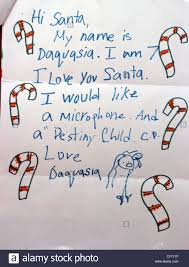 Hi Santa,
My name is
Daquasia. I am 7
I Love You Santa.
I would like
a microphone. And
a "Destiny Child C.D.
Love
Daquasia
alamy stock photo